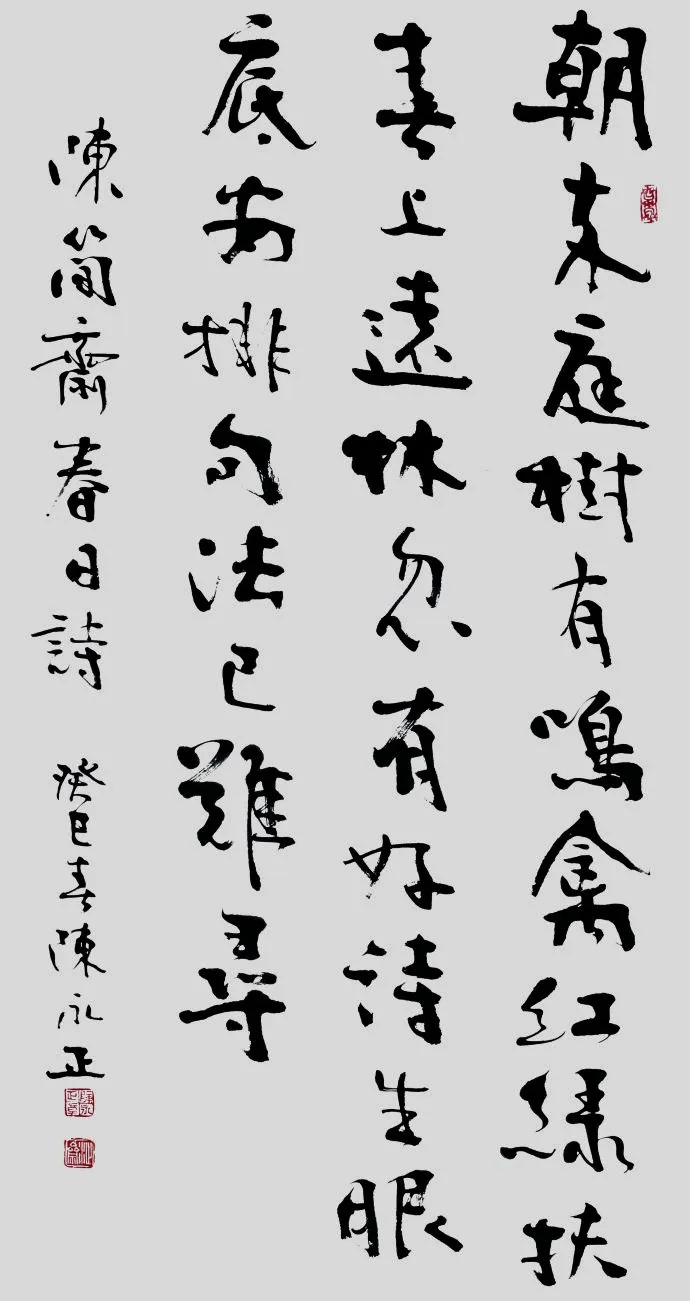 朝来庭樹有鳴禽紅緑扶
春上遠林忽有好詩生眼
底安排句法已難尋
陳簡齋春日詩 癸巳春陳永正